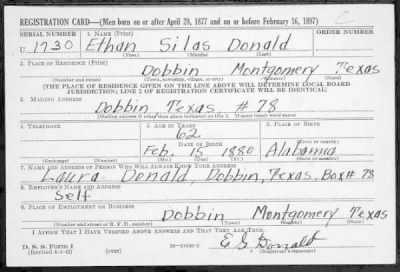 REGISTRATION CARD—(Men born on or after April 28, 1877 and on or before February 16, 1897)
SERIAL NUMBER 1. NAME (Print) ORDER NUMBER
U 1730 Ethan Silas Donald
(First) (Middle) (Last)
2. PLACE OF RESIDENCE (Print)
Dobbin Montgomery Texas
(Number and street) (Town, township, village, or city) (County) (State)
[THE PLACE OF RESIDENCE GIVEN ON THE LINE ABOVE WILL DETERMINE LOCAL BOARD
JURISDICTION; LINE 2 OF REGISTRATION CERTIFICATE WILL BE IDENTICAL]
3. MAILING ADDRESS
Dobbin, Texas, # 78
[Mailing address if other than place indicated on line 2. If same insert word same]
4. TELEPHONE 5. AGE IN YEARS 6. PLACE OF BIRTH
62
DATE OF BIRTH (Town or county)
Feb. 15 1880 Alabama
(Exchange) (Number) (Mo.) (Day) (Yr.) (State or country)
7. NAME AND ADDRESS OF PERSON WHO WILL ALWAYS KNOW YOUR ADDRESS
Laura Donald, Dobbin, Texas, Box # 78
8. EMPLOYER'S NAME AND ADDRESS
Self
9. PLACE OF EMPLOYMENT OR BUSINESS
Dobbin Montgomery Texas
(Number and street or R. F. D. number) (Town) (County) (State)
I AFFIRM THAT I HAVE VERIFIED ABOVE ANSWERS AND THAT THEY ARE TRUE.
D. S. S. Form 1
(Revised 4-1-42) (over) E S Donald